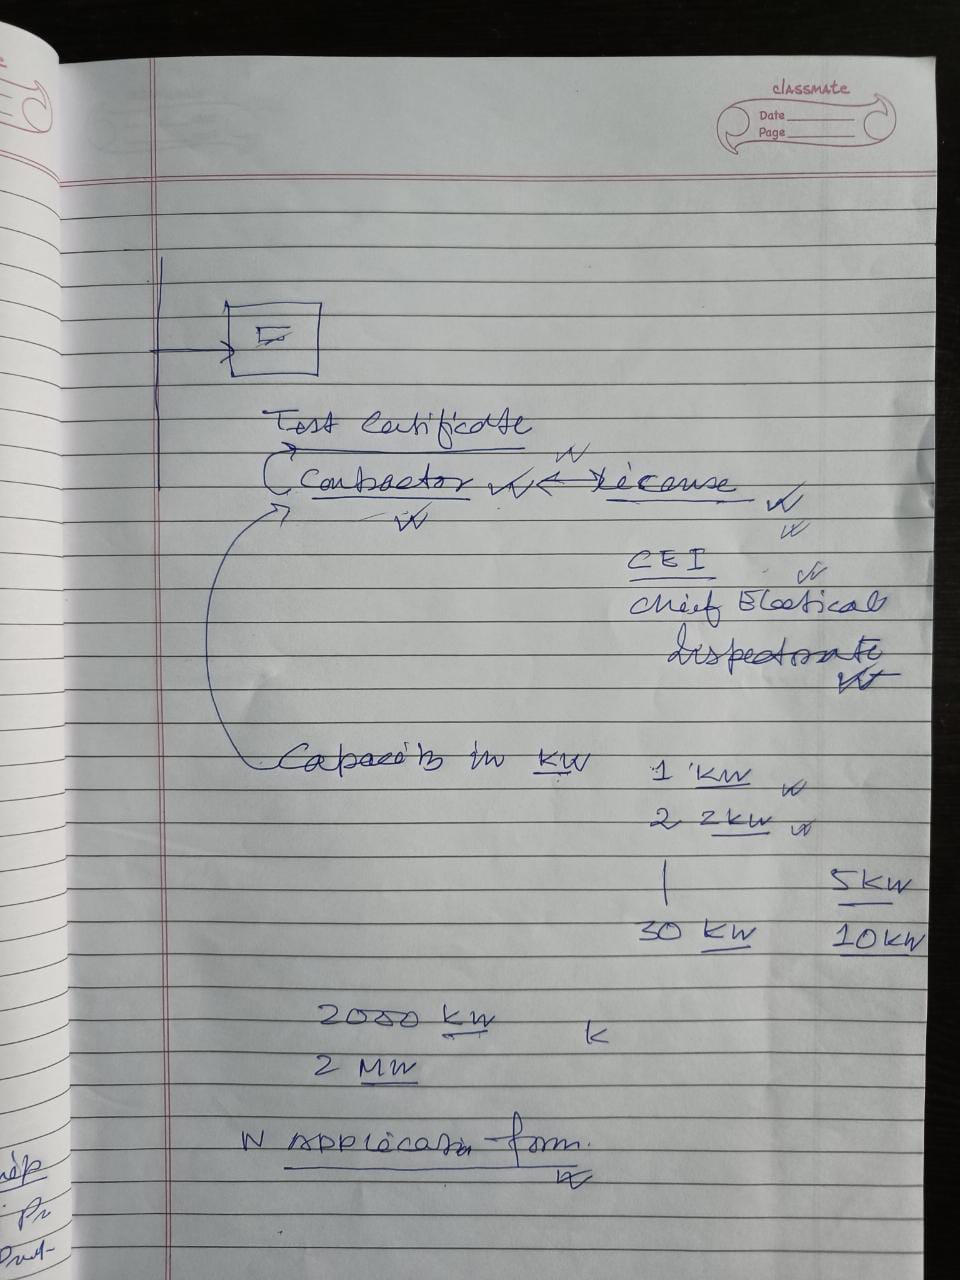 classmate
Date
Page
Test Certificate
Contractor License
CEI
Chief Electical
Inspectorate
Capacity in KW
1 KW
2 2KW
5KW
30 KW 10KW
2000 KW K
2 MW
Application form.
Pr